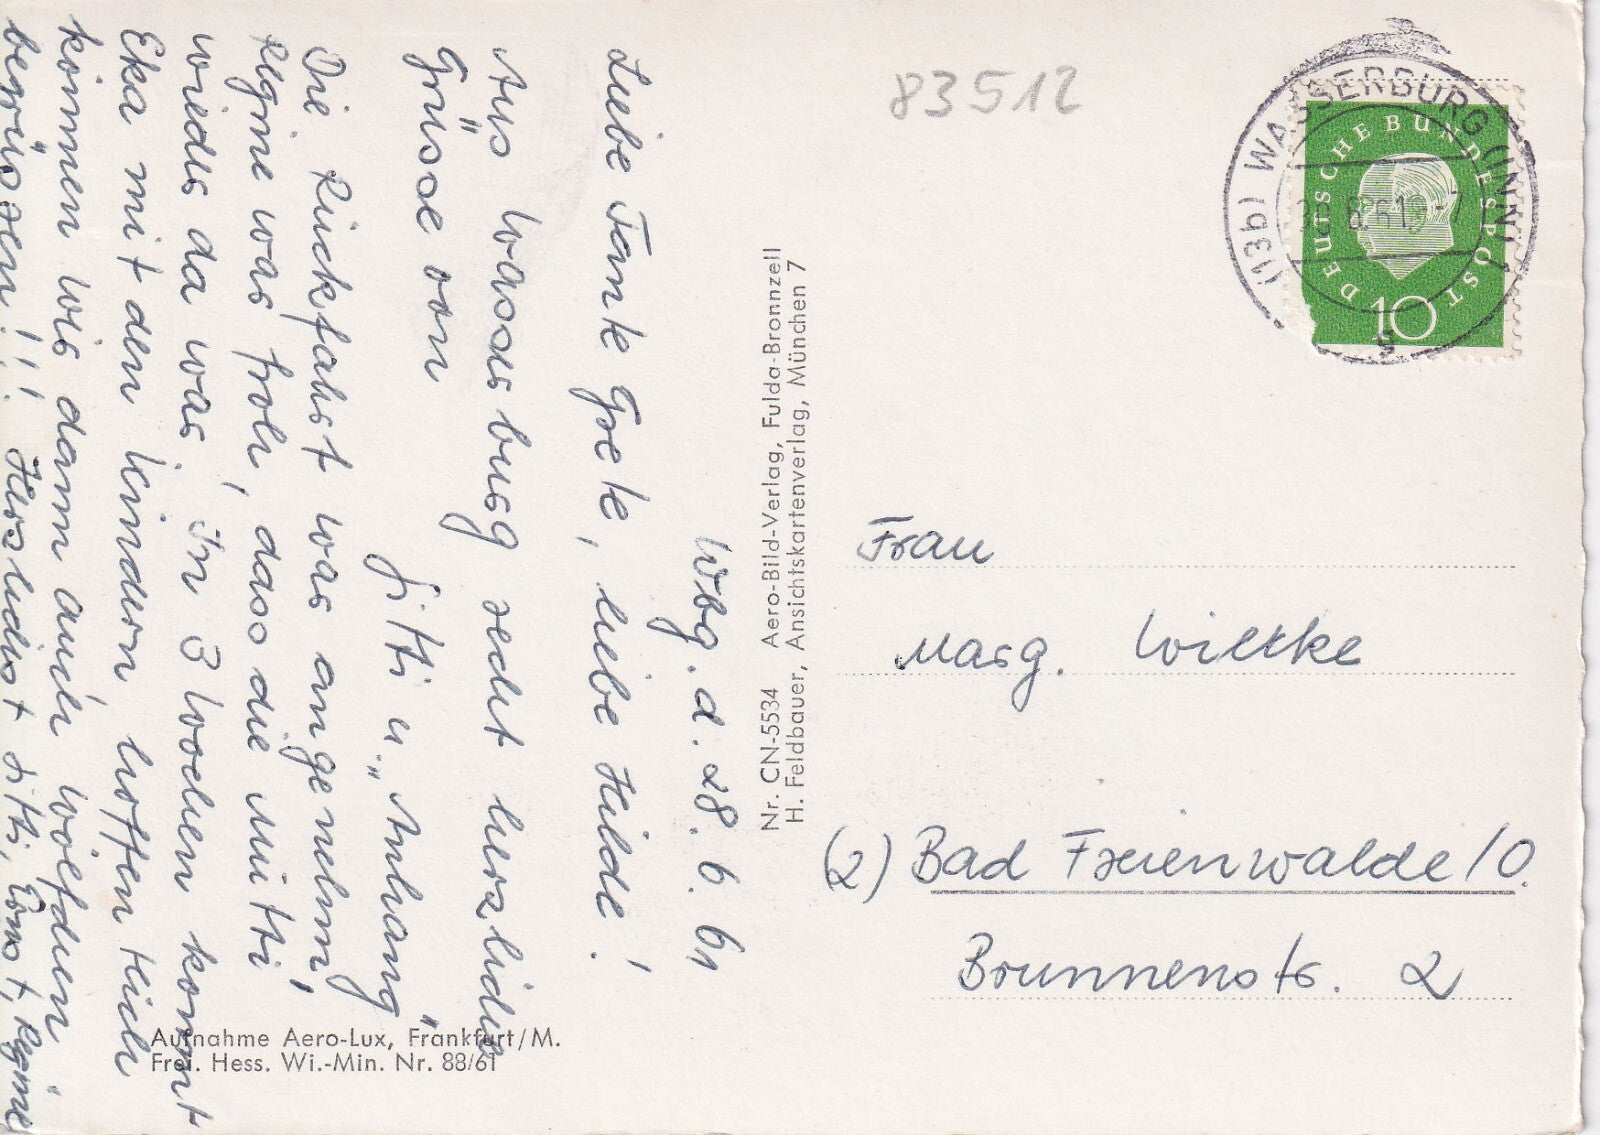 Wbg. d. 28. 6. 61
Liebe Tante Grete, liebe Hilde!
Aus Wasserburg recht herzliche
Grüsse von
Jitti u. "Anhang"
Die Rückfahrt war angenehm,
Regine war froh, dass die Mutti
wieder da war. In 3 Wochen kommt
Eka mit den Kindern, hoffentlich
können wir dann auch Wölfchen
begrüssen!!! Herzlichst Jitti, Ernst, Regine
Nr. CN-5534 Aero-Bild-Verlag, Fulda-Bronnzell
H. Feldbauer, Ansichtskartenverlag, München 7
Aufnahme Aero-Lux, Frankfurt/M.
Frei. Hess. Wi.-Min. Nr. 88/61
83512
(13b) WASSERBURG (INN)
DEUTSCHE BUNDESPOST
10
g
Frau
Marg. Wilttke
(2) Bad Freienwalde/O.
Brunnenstr. 2